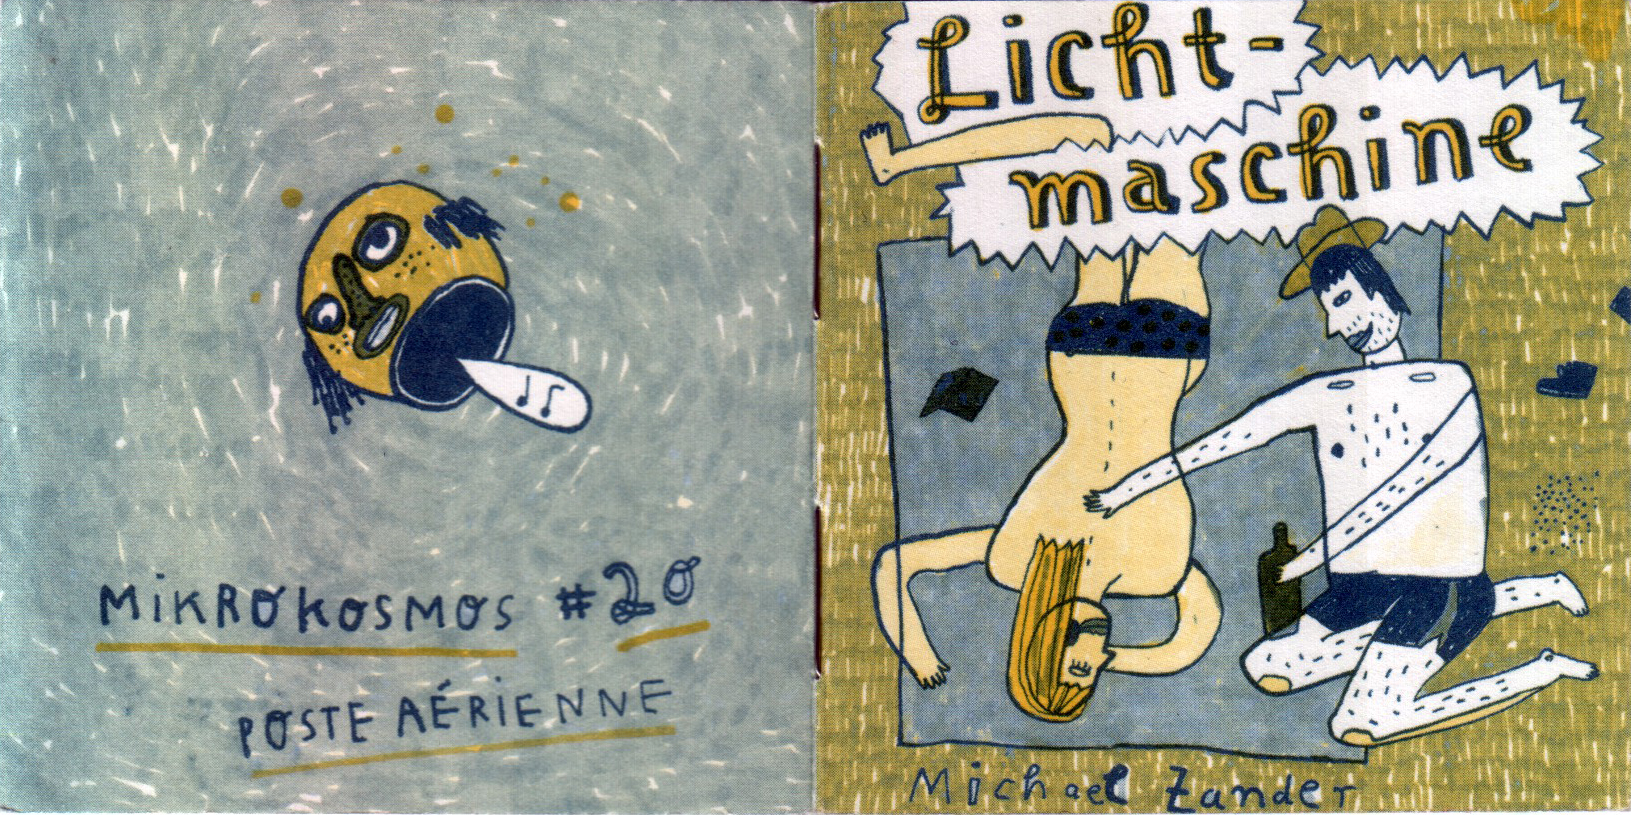 MiKROKOSMOS #20
POSTE AÉRIENNE
Licht-
maschine
Michael Zander